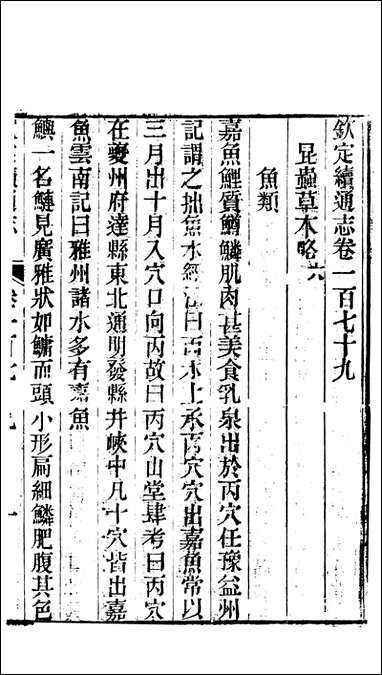 欽定續通志卷一百七十九
昆蟲草木略六
魚類
嘉魚鯉質鱒鱗肌肉甚美食乳泉出於丙穴任豫益州
記謂之拙魚水經注曰丙水上承丙穴穴出嘉魚常以
三月出十月入穴口向丙故曰丙穴山堂肆考曰丙穴
在夔州府達縣東北通明發縣井峽中凡十穴皆出嘉
魚雲南記曰雅州諸水多有嘉魚
鱮一名鰱見廣雅狀如鱅而頭小形扁細鱗肥腹其色